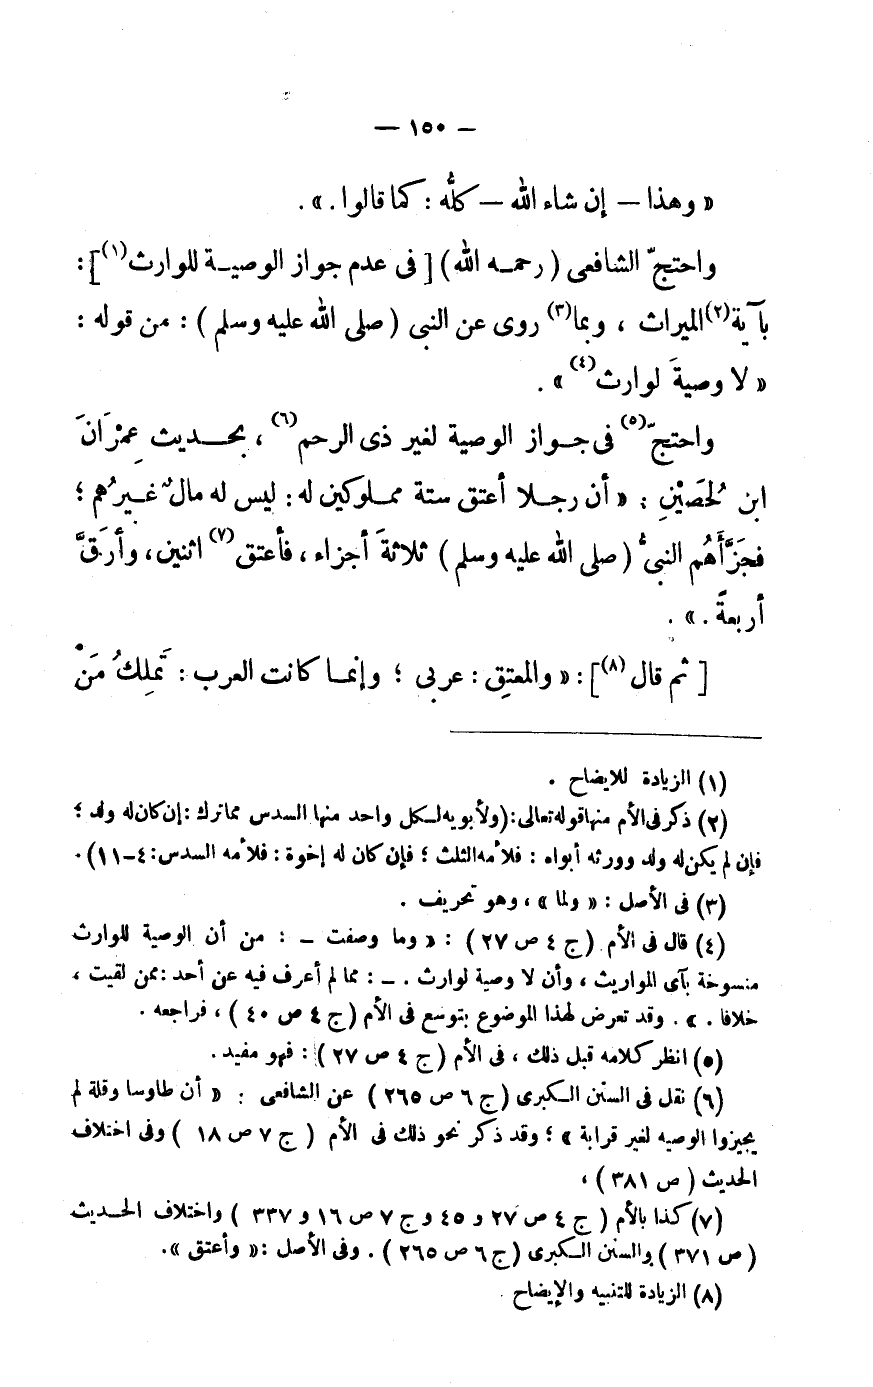 — ١٥٠ —
« وهذا — إن شاء الله — كلُّه : كما قالوا . » .
واحتجّ الشافعى ( رحمه الله ) [ فى عدم جواز الوصية للوارث(١) ] :
بآية(٢) الميراث ، وبما(٣) روى عن النبى ( صلى الله عليه وسلم ) : من قوله :
« لا وصيةَ لوارث(٤) » .
واحتجّ(٥) فى جواز الوصية لغير ذى الرحم(٦) ، بحديث عِمْرَانَ
ابن الحُصَيْنِ : « أن رجلا أعتق ستة مملوكين له : ليس له مالٌ غيرُهم ؛
فجَزَّأَهُم النبىُّ ( صلى الله عليه وسلم ) ثلاثةَ أجزاء ، فأعتق(٧) اثنين ، وأرَقَّ
أربعةً . » .
[ ثم قال(٨) ] : « والمعتِق : عربى ؛ وإنما كانت العرب : تَملِكُ مَنْ
(١) الزيادة للايضاح .
(٢) ذكر فى الأم منها قوله تعالى : (ولأبويه لكل واحد منها السدس مما ترك : إن كان له ولد ؛
فإن لم يكن له ولد وورثه أبواه : فلأمه الثلث ؛ فإن كان له إخوة : فلأمه السدس : ٤-١١) .
(٣) فى الأصل : « ولما » ، وهو تحريف .
(٤) قال فى الأم ( ج ٤ ص ٢٧ ) : « وما وصفت — : من أن الوصية للوارث
منسوخة بآى المواريث ، وأن لا وصية لوارث . — : مما لم أعرف فيه عن أحد : ممن لقيت ،
خلافا . » . وقد تعرض لهذا الموضوع بتوسع فى الأم ( ج ٤ ص ٤٠ ) ، فراجعه .
(٥) انظر كلامه قبل ذلك ، فى الأم ( ج ٤ ص ٢٧ ) : فهو مفيد .
(٦) نقل فى السنن الكبرى ( ج ٦ ص ٢٦٥ ) عن الشافعى : « أن طاوسا وقلة لم
يجيزوا الوصيه لغير قرابة » ؛ وقد ذكر نحو ذلك فى الأم ( ج ٧ ص ١٨ ) وفى اختلاف
الحديث ( ص ٣٨١ ) ،
(٧) كذا بالأم ( ج ٤ ص ٢٧ و ٤٥ و ج ٧ ص ١٦ و ٣٣٧ ) واختلاف الحديث
( ص ٣٧١ ) والسنن الكبرى ( ج ٦ ص ٢٦٥ ) . وفى الأصل : « وأعتق » .
(٨) الزيادة للتنبيه والإيضاح .